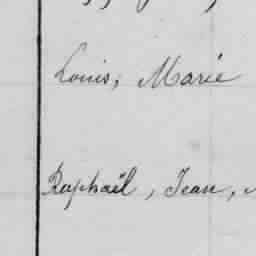 Louis, Marie
Raphaël, Jean,